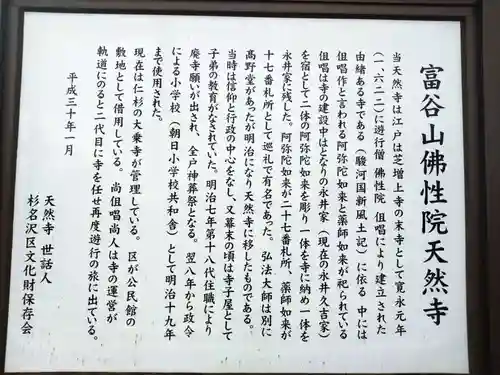 富谷山佛性院天然寺
当天然寺は江戸は芝増上寺の末寺として寛永元年
(一、六二二)に遊行僧 佛性院 但唱により建立された
由緒ある寺である(駿河国新風土記)に依る 中には
但唱作と言われる阿弥陀如来と薬師如来が祀られている
但唱は寺の建設中はとなりの永井家(現在の永井久吉家)
を宿として二体の阿弥陀如来を彫り一体を寺に納め一体を
永井家に残した。阿弥陀如来が二十七番札所、薬師如来が
十七番札所として巡礼で有名であった。弘法大師は別に
高野堂があったが明治になり天然寺に移したものである。
当時は信仰と行政の中心をなし、又幕末の頃は寺子屋として
子弟の教育がなされていた。明治七年第十八代住職により
廃寺願いが出され、全戸神葬祭となる。翌八年から政令
による小学校(朝日小学校共和舎)として明治十九年
まで使用された。
現在は仁杉の大乗寺が管理している。 区が公民館の
敷地として借用している。尚但唱尚人は寺の運営が
軌道にのると二代目に寺を任せ再度遊行の旅に出ている。
平成三十年一月
天然寺 世話人
杉名沢区文化財保存会